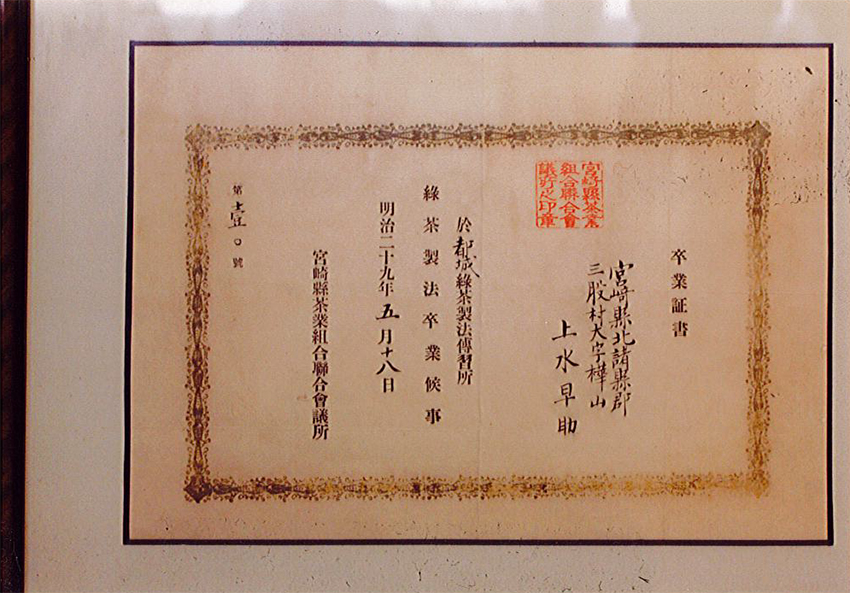 卒業証書
宮崎縣北諸縣郡
三股村大字樺山
上水早助
宮崎縣茶業
組合聯合會
議所之印章
於都城綠茶製法傳習所
綠茶製法卒業候事
明治二十九年五月十八日
宮崎縣茶業組合聯合會議所
第 號